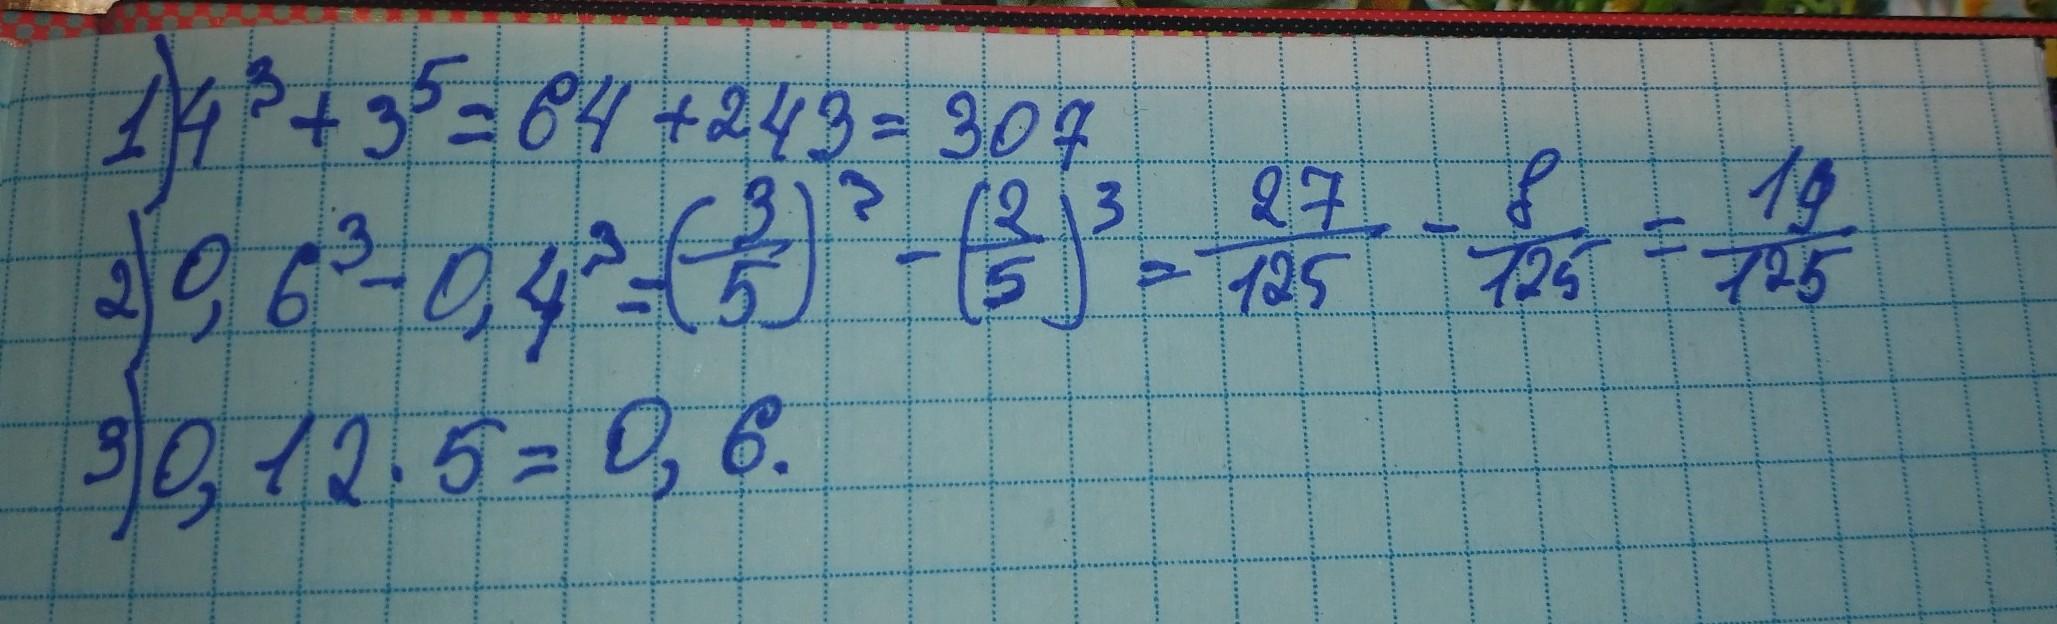 1) 4³ + 3⁵ = 64 + 243 = 307
2) 0,6³ - 0,4³ = (3/5)³ - (2/5)³ = 27/125 - 8/125 = 19/125
3) 0,12 · 5 = 0,6.